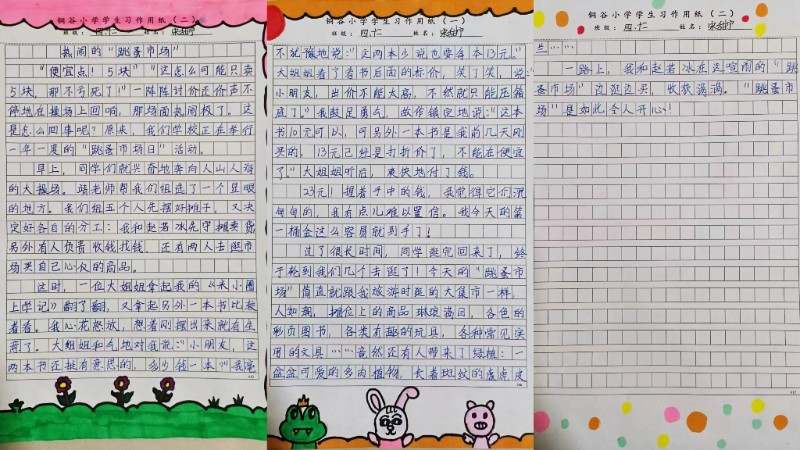 铜谷小学学生习作用纸（二）
班级：四.仁 姓名：宋
热闹的“跳蚤市场”
“便宜点！5块”“这怎么可能只卖
5块，那不亏死了！”一阵阵讨价还价声不
停地在操场上回响，那场面热闹极了。这
是怎么回事呢？原来，我们学校正在举行
一年一度的“跳蚤市场日”活动。
早上，同学们就兴奋地奔向人山人海
的大操场。
老师帮我们组选了一个显眼
的地方。我们组五个人先摆好摊子，又决
定好各自的分工：我和赵若冰先守摊卖货
另外有人负责收钱找钱，还有两人去逛市
场买自己心仪的商品。
这时，一位大姐姐拿起我的《米小圈
上学记》翻了翻，又拿起另外一本书比较
着看。我心花怒放，想着刚摆出来就有生
意了。大姐姐和气地对我说：“小朋友，这
两本书还挺有意思的，多少钱一本？”我毫
铜谷小学学生习作用纸（一）
班级：四.仁 姓名：宋
不犹豫地说：“这两本少说也要各本13元。”
大姐姐看了看书后面的标价，笑了笑，说：“
小朋友，出价不能太高，不然就只能压箱
底了。”我鼓足勇气，故作镇定地说：“这本
书10元可以，可另外一本书是我前几天刚
买的，13元已经是打折价了，不能在便宜
了。”大姐姐听后，爽快地付了钱。
23元！握着手中的钱，我觉得它们沉
甸甸的，我有点儿难以置信。我今天的第
一桶金这么容易就到手了！
过了很长时间，同学逛完回来了，终
于轮到我们几个去逛了！今天的“跳蚤市
场”简直就跟我旅游时逛的大集市一样。
人如潮，摊位上的商品琳琅满目，各色的
彩页图书，各类有趣的玩具，各种常见实
用的文具……竟然还有人带来了绿植：一
盆盆可爱的多肉植物，长着斑纹的虎虎皮
铜谷小学学生习作用纸（二）
班级：四.仁 姓名：宋
兰……
一路上，我和赵若冰在这喧闹的“跳
蚤市场”边逛边买，收获满满。“跳蚤市
场”是如此令人开心！